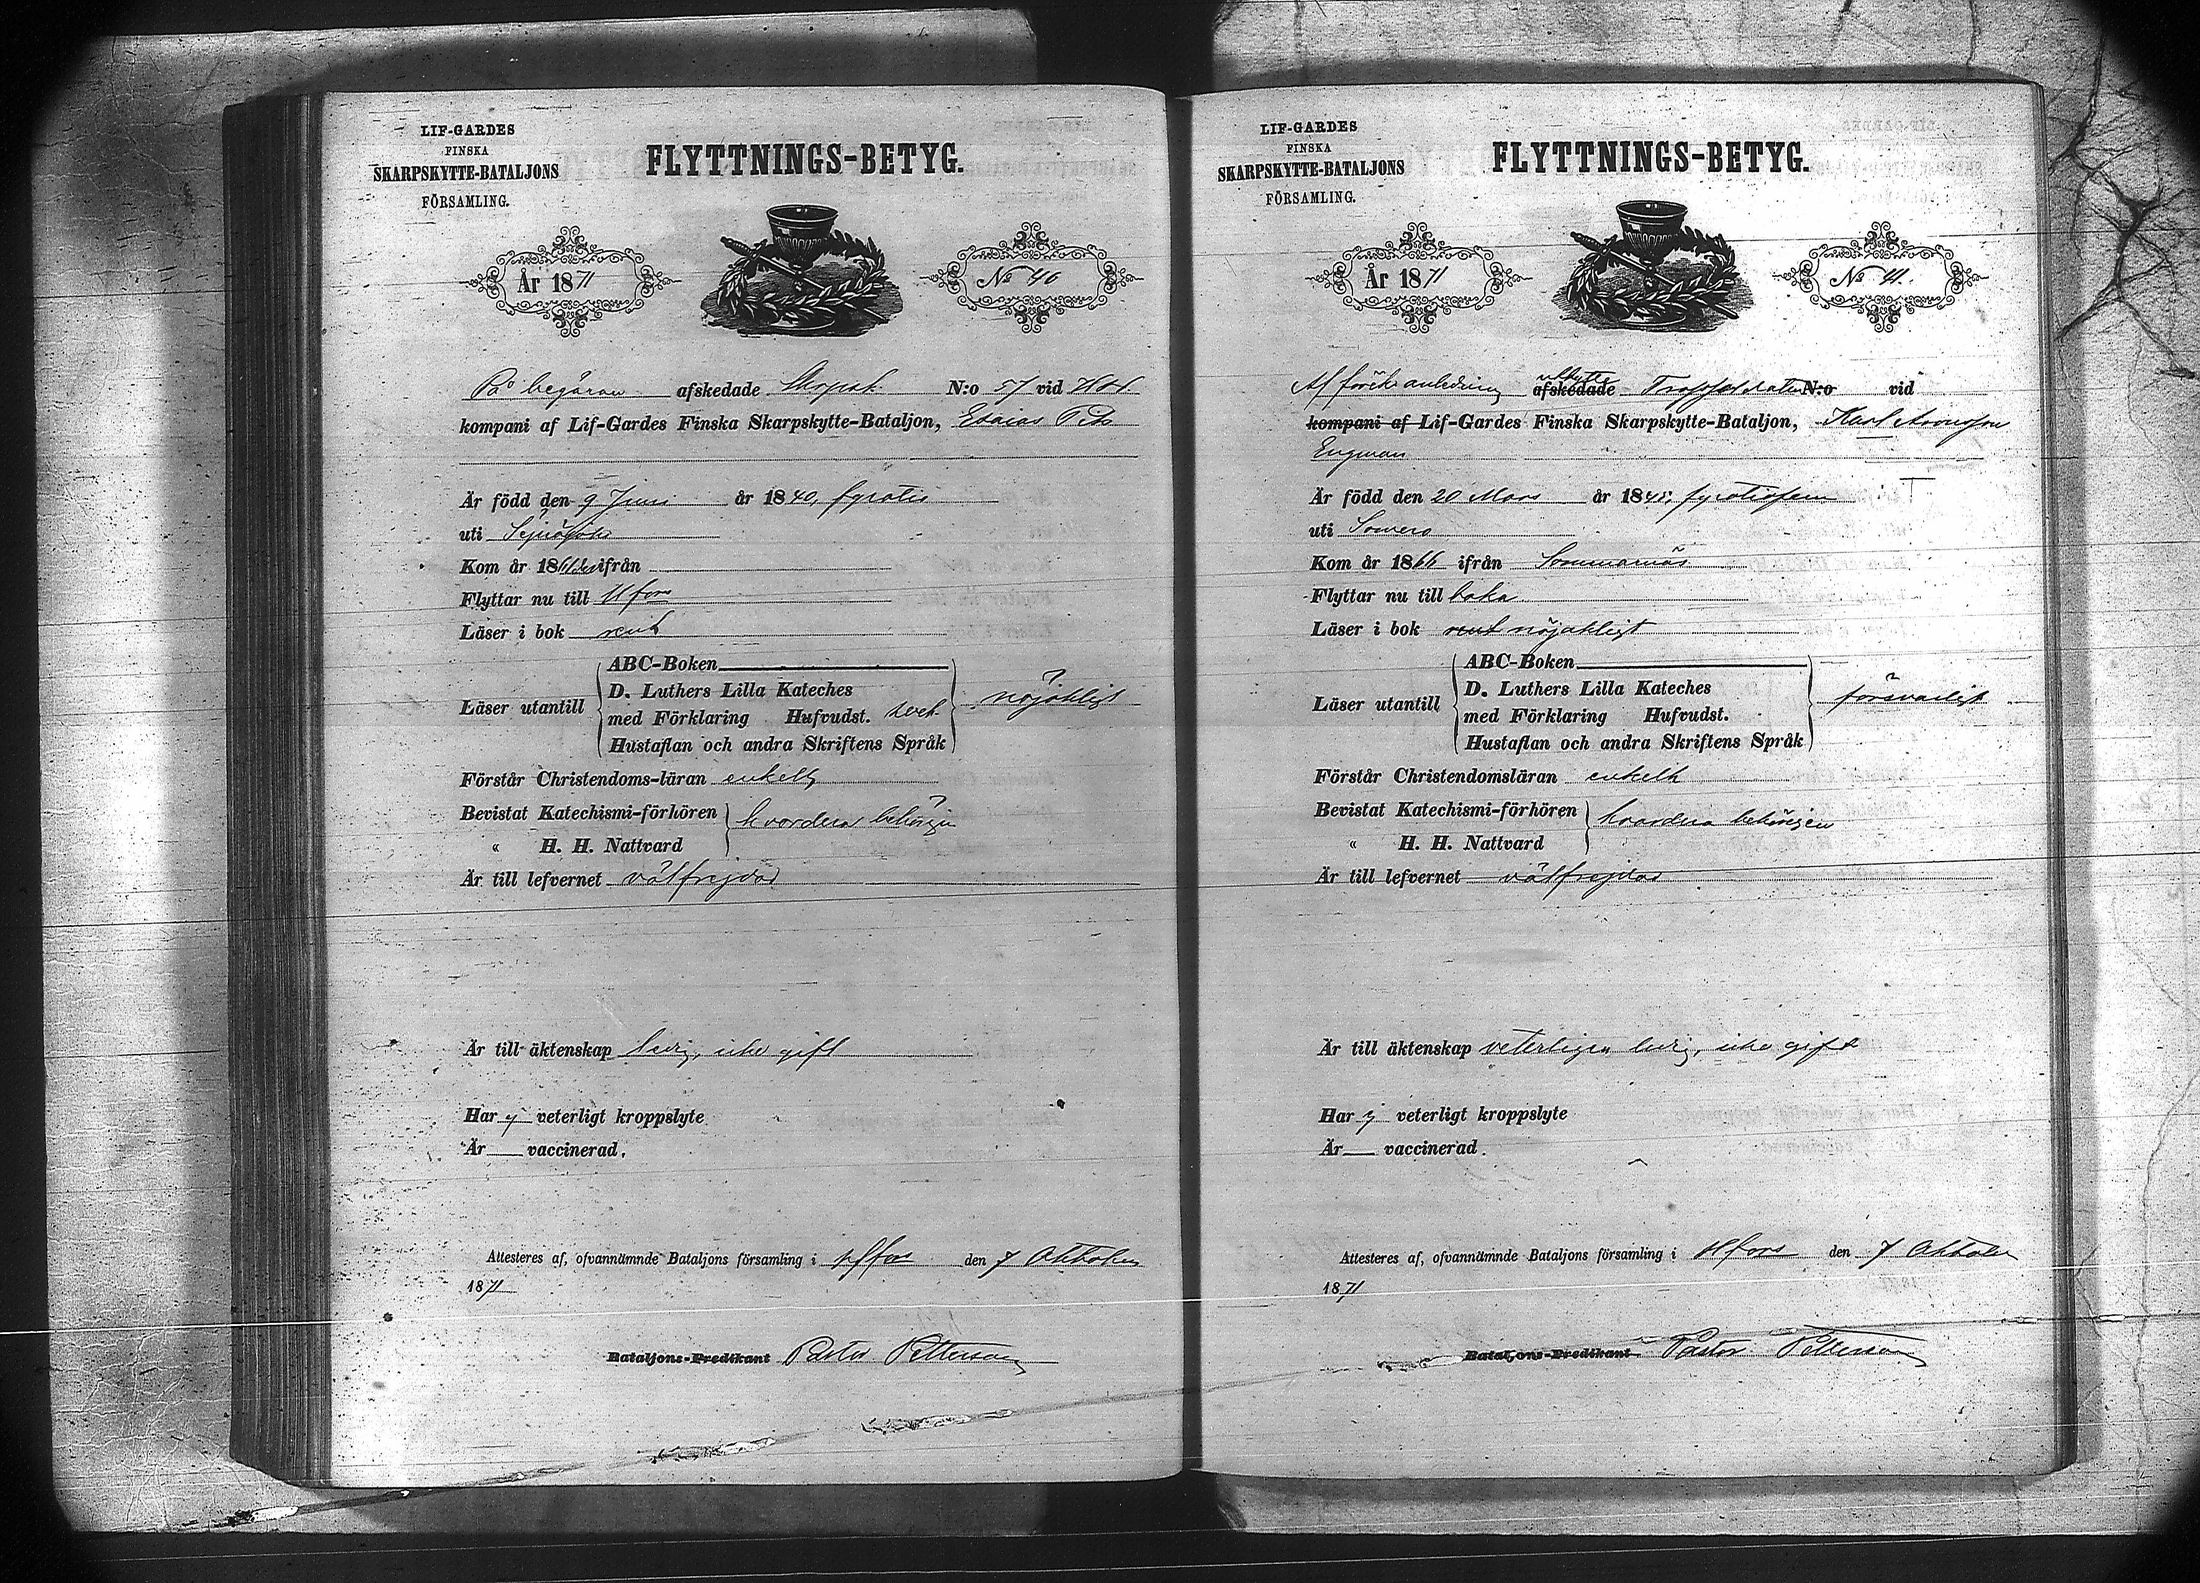 LIF-GARDES
FINSKA
SKARPSKYTTE-BATALJONS
FÖRSAMLING.
FLYTTNINGS-BETYG.
År 1871
No 40
På begäran afskedade N:o 57 vid
kompani af Lif-Gardes Finska Skarpskytte-Bataljon, Esaias
Är född den 9 Juni år 1840, fyratio
uti
Kom år 186 ifrån
Flyttar nu till Hfors
Läser i bok rent
ABC-Boken
D. Luthers Lilla Kateches
Läser utantill med Förklaring Hufvudst. nöjaktigt
Hustaflan och andra Skriftens Språk
Förstår Christendoms-läran enkelt
Bevistat Katechismi-förhören hvardera behörigen
« H. H. Nattvard
Är till lefvernet välfrejdad
Är till äktenskap ledig, icke gift
Har ej veterligt kroppslyte
Är vaccinerad.
Attesteres af, ofvannämnde Bataljons församling i Hfors den 7 Oktober
1871
Bataljons-Predikant Pastor Pettersson
LIF-GARDES
FINSKA
SKARPSKYTTE-BATALJONS
FÖRSAMLING.
FLYTTNINGS-BETYG.
År 1871
No 41.
Af förekn anledning afskedade N:o vid
kompani af Lif-Gardes Finska Skarpskytte-Bataljon, Karl
Engman
Är född den 20 Mars år 1845, fyratiofem
uti Somero
Kom år 1866 ifrån Sommarnäs
Flyttar nu till
Läser i bok rent nöjaktigt
ABC-Boken
D. Luthers Lilla Kateches
Läser utantill med Förklaring Hufvudst. försvarligt
Hustaflan och andra Skriftens Språk
Förstår Christendomsläran enkelt
Bevistat Katechismi-förhören hvardera behörigen
« H. H. Nattvard
Är till lefvernet välfrejdad
Är till äktenskap veterligen ledig, icke gift
Har ej veterligt kroppslyte
Är vaccinerad.
Attesteres af, ofvannämnde Bataljons församling i Hfors den 7 Oktober
1871
Bataljons-Predikant Pastor Pettersson